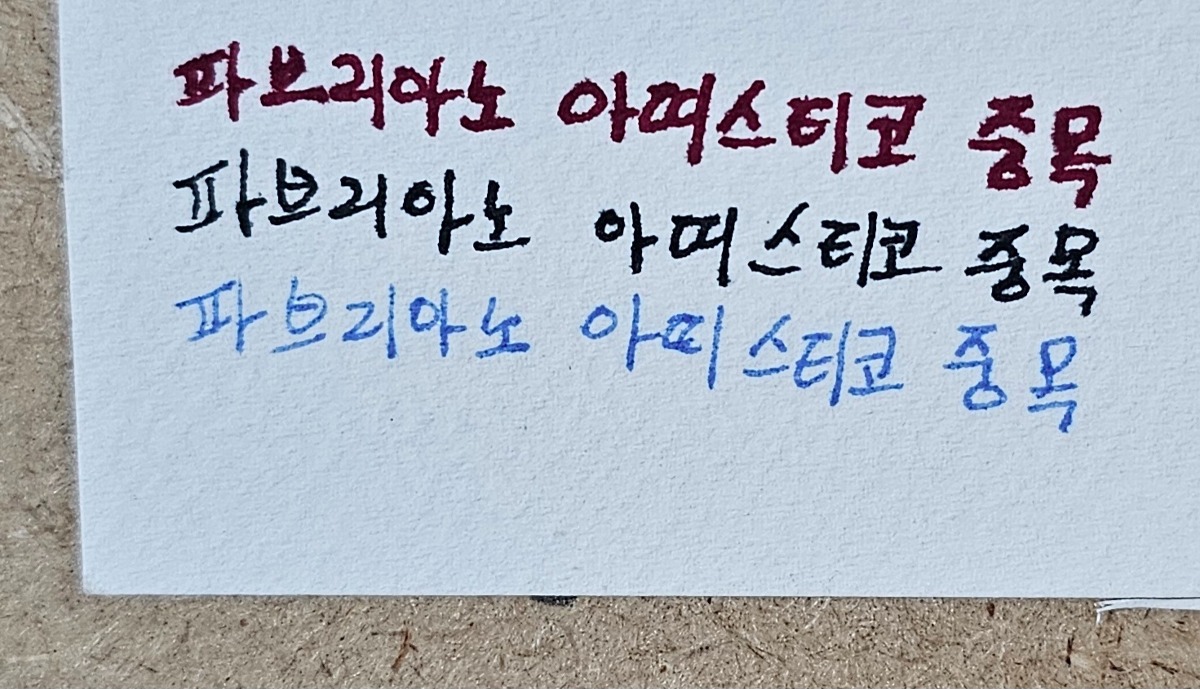 파브리아노 아띠스티코 중목
파브리아노 아띠스티코 중목
파브리아노 아띠스티코 중목